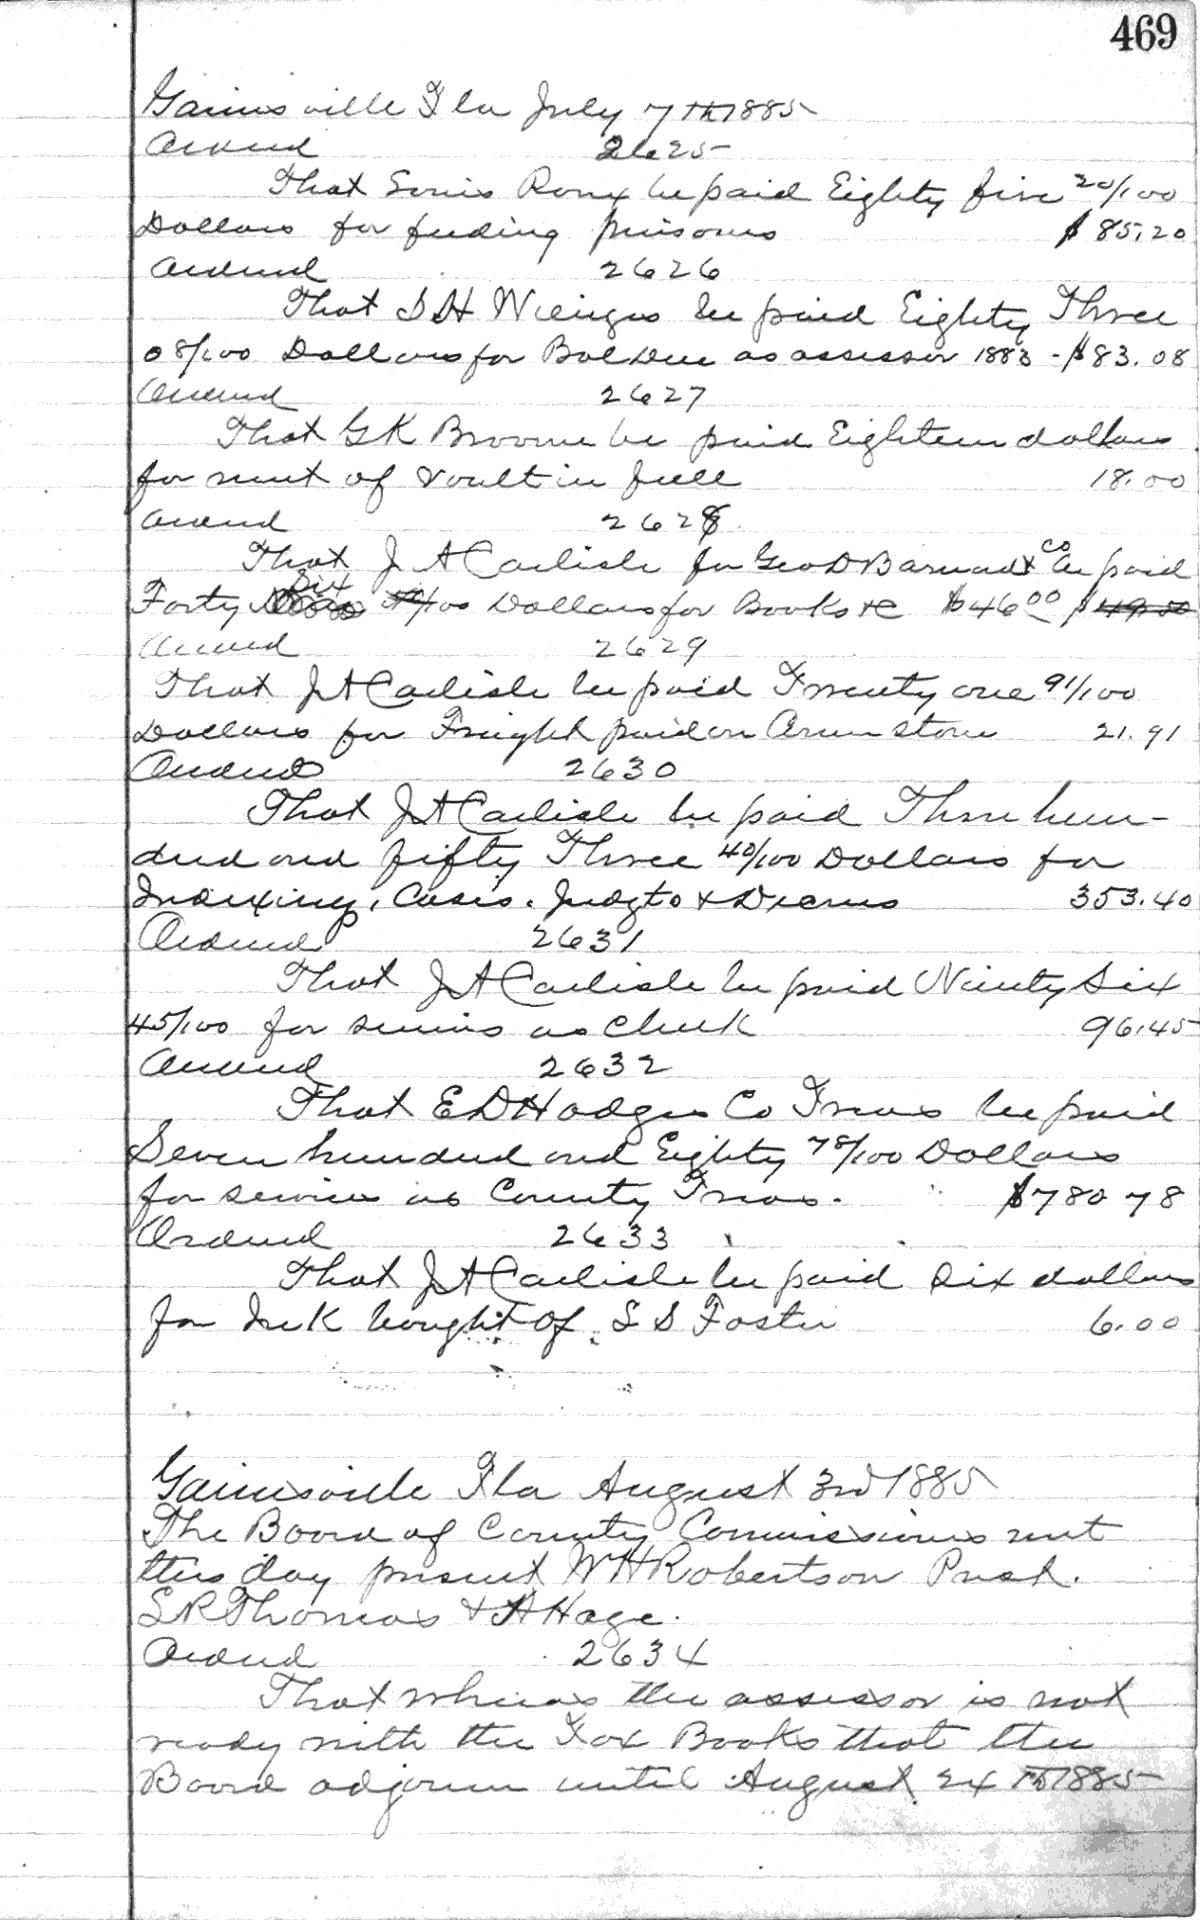 469
Gainesville Fla July 7th 1885
Ordered 2625
That Louis Roux be paid Eighty five 20/100
Dollars for feeding prisoners $85.20
Ordered 2626
That S H Wienges be paid Eighty Three
08/100 Dollars for Bal Due as assessor 1883 - $83.08
Ordered 2627
That G K Broome be paid Eighteen dollars
for rent of vault in full 18.00
Ordered 2628
That J A Carlisle for Geo D Barnard & Co be paid
Forty Six /100 Dollars for Books &c $46 00
Ordered 2629
That J A Carlisle be paid Twenty one 91/100
Dollars for Freight paid on 21.91
Ordered 2630
That J A Carlisle be paid Three hun-
dred and fifty Three 40/100 Dollars for
Indexing, Cases. Judgts & Decrees 353.40
Ordered 2631
That J A Carlisle be paid Ninety Six
45/100 for services as Clerk 96.45
Ordered 2632
That E D Hodges Co Treas be paid
Seven hundred and Eighty 78/100 Dollars
for services as County Treas. $780 78
Ordered 2633
That J A Carlisle be paid Six dollars
for Ink bought of S S Foster 6.00
Gainesville Fla August 3rd 1885
The Board of County Commissioners met
this day present W H Robertson Prest.
S R Thomas & H Hague.
Ordered 2634
That whereas the assessor is not
ready with the Tax Books that the
Board adjourn until August 24th 1885